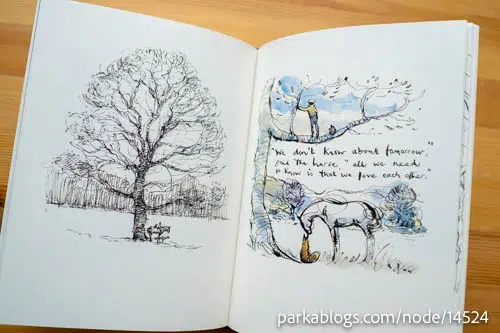 "We don't know about tomorrow,"
said the horse, "all we need
to know is that we love each other."
parkablogs.com/node/14524